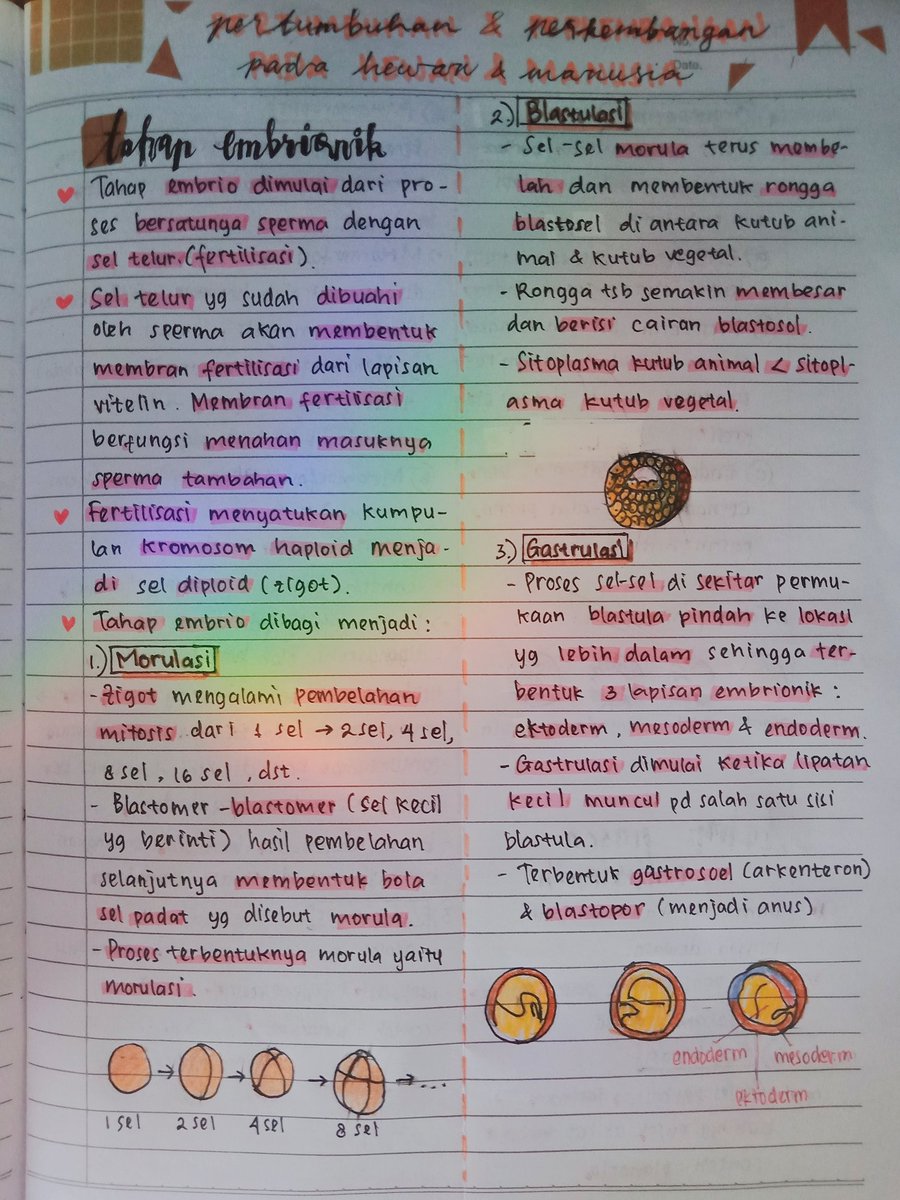 pertumbuhan & perkembangan
pada hewan & manusia
Date.
tahap embrionik
Tahap embrio dimulai dari pro-
ses bersatunya sperma dengan
sel telur (fertilisasi).
Sel telur yg sudah dibuahi
oleh sperma akan membentuk
membran fertilisasi dari lapisan
vitelin. Membran fertilisasi
berfungsi menahan masuknya
sperma tambahan.
Fertilisasi menyatukan kumpu-
lan kromosom haploid menja-
di sel diploid (zigot).
Tahap embrio dibagi menjadi :
1.) Morulasi
- Zigot mengalami pembelahan
mitosis dari 1 sel → 2 sel, 4 sel,
8 sel, 16 sel, dst.
- Blastomer-blastomer (sel kecil
yg berinti) hasil pembelahan
selanjutnya membentuk bola
sel padat yg disebut morula.
- Proses terbentuknya morula yaitu
morulasi.
1 sel 2 sel 4 sel 8 sel
2.) Blastulasi
- Sel-sel morula terus membe-
lah dan membentuk rongga
blastosel di antara kutub ani-
mal & kutub vegetal.
- Rongga tsb semakin membesar
dan berisi cairan blastosol.
- Sitoplasma kutub animal < sitopl-
asma kutub vegetal.
3.) Gastrulasi
- Proses sel-sel di sekitar permu-
kaan blastula pindah ke lokasi
yg lebih dalam sehingga ter-
bentuk 3 lapisan embrionik :
ektoderm, mesoderm & endoderm.
- Gastrulasi dimulai ketika lipatan
kecil muncul pd salah satu sisi
blastula.
- Terbentuk gastrosoel (arkenteron)
& blastopor (menjadi anus)
endoderm mesoderm
ektoderm